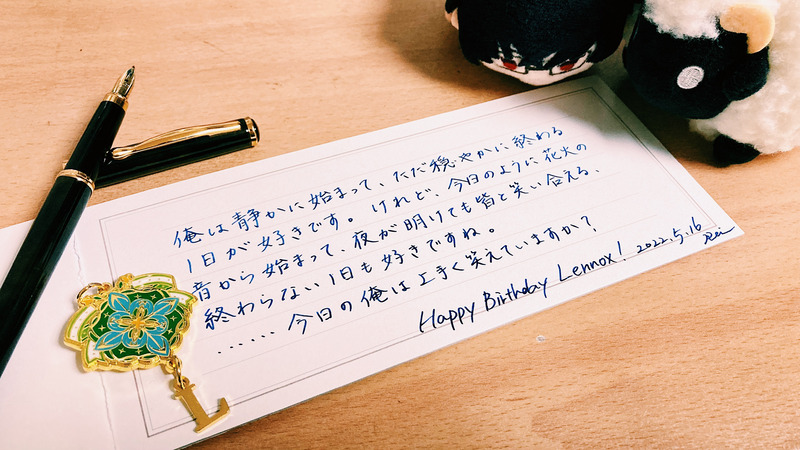 俺は静かに始まって、ただ穏やかに終わる
1日が好きです。けれど、今日のように花火の
音から始まって、夜が明けても皆と笑い合える、
終わらない1日も好きですね。
......今日の俺は上手く笑えていますか?
Happy Birthday Lennox! 2022.5.16
Rei
L